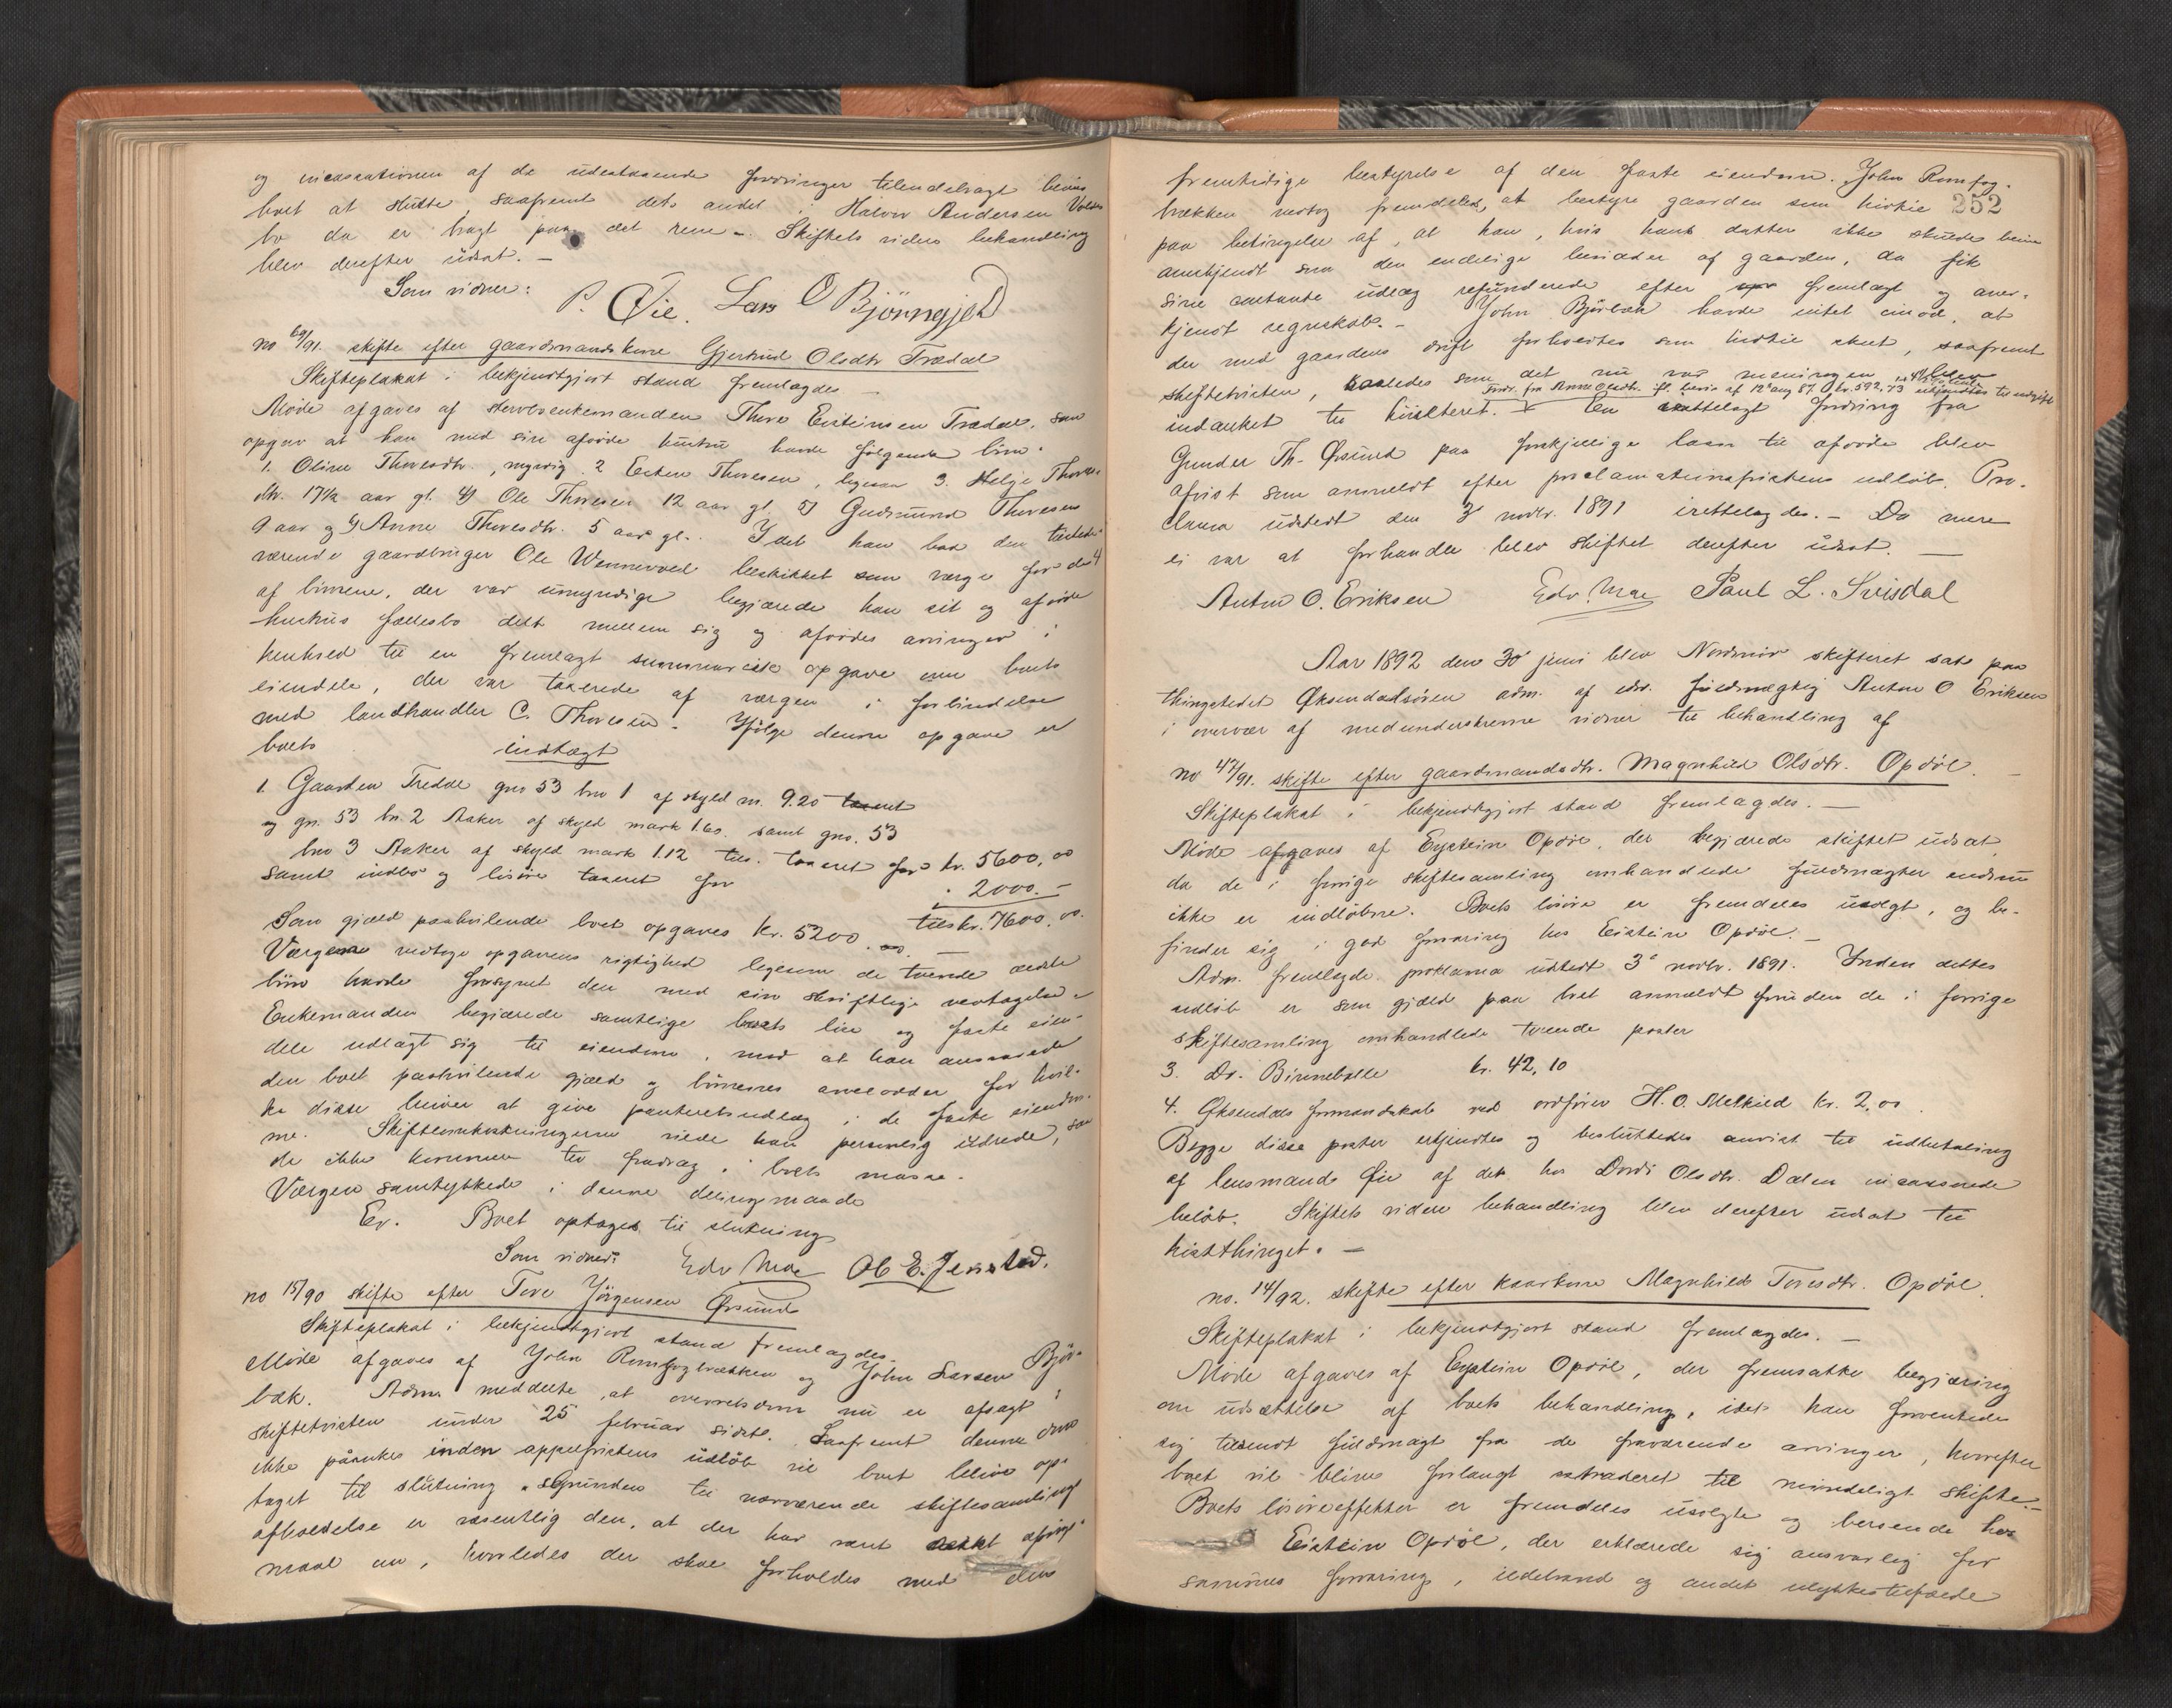 og incassationen af de udestaaende fordringer tilendebragt
boet at slutte, saafremt dets andel i Halvor Andersen
bo da er bragt paa det rene. Skiftets videre behandling
blev derefter udsat. —
Som vidner: P. Øie. Lars O Bjørnegjeld
no 69/91. skifte efter gaardmandskone Gjertrud Olsdtr Trædal
Skifteplakat i bekjendtgjort stand fremlagdes —
Møde afgaves af stervboenkemanden Thore Eisteinsen Trædal, som
opgav at han med sin afdøde hustru havde følgende børn:
1. Oline Thoresdtr., myndig. 2 Esten Thoresen, ligesaa 3. Helge Thores-
dtr. 17½ aar gl. 4) Ole Thoresen 12 aar gl. 5) Gudmund Thoresen
9 aar og 6) Anne Thoresdtr. 5 aar gl. Idet han bad den tilstede-
værende gaardbruger Ole Wennevold beskikket som værge for de 4
af børnene, der var umyndige begjærede han sit og afdøde
hustrus fællesbo delt mellem sig og afdødes arvinger i
henhold til en fremlagt summarisk opgave over boets
eiendele, der var taxerede af værgen i forbindelse
med landhandler C. Thoresen. Ifølge denne opgave er
boets indtægt
1. Gaarden Tredal gno 53 bno 1 af skyld m. 9.20 taxeret
og gn. 53 bn. 2 Aaker af skyld mark 1.60. samt gno. 53
bno 3 Aaker af skyld mark 1.12 tils. taxeret for kr. 5600,00
samt indbo og løsøre taxeret for " 2000. —
tils kr. 7600,00.
Som gjæld paahvilende boet opgaves kr. 5200.00. —
Værgen vedtog opgavens rigtighed ligesom de tvende ældste
børn havde forsynet den med sin skriftlige vedtagelse.
Enkemanden begjærede samtlige boets løse og faste eien-
dele udlagt sig til eiendom, mod at han ansvarede
den boet paahvilende gjæld og børnenes arvelodder for hvil-
ke disse bliver at give panteretsudlæg i de faste eiendom-
me. Skifteomkostningerne vilde han personlig udrede, saa
de ikke kommer til fradrag i boets masse.
Værgen samtykkede i denne delingsmaade
Er. Boet optoges til slutning
Som vidner: Edv Moe Ole E. Jenstad.
no 15/90 skifte efter Tore Jørgensen Ørsund
Skifteplakat i bekjendtgjort stand fremlagdes.
Møde afgaves af John Romfogbrækken og John Larsen Bjør-
bæk. Adm. meddelte, at overretsdom nu er afsagt i
skiftetvisten under 25 februar sidste. Saafremt denne dom
ikke paaankes inden appelfristens udløb vil boet blive op-
taget til slutning. Grunden til nærværende skiftesamlings
afholdelse er væsentlig den, at der har været reist spørgs-
maal om, hvorledes der skal forholdes med den
252
fremtidige bestyrelse af den faste eiendom. John Romfog-
brækken vedtog fremdeles, at bestyre gaarden som hidtil
paa betingelse af, at han, hvis hans datter ikke skulde blive
anerkjendt som den endelige besidder af gaarden, da fik
sine contante udlæg refunderede efter fremlagt og aner-
kjendt regnskab. — John Bjørbæk havde intet imod, at
der med gaardens drift forholdtes som hidtil skeet, saafremt
skiftetvisten, saaledes som det nu var meningen blev
indanket til høiesteret. En irettelagt fordring fra
Gunder Th. Ørsund paa forskjellige laan til afdøde blev
afvist som anmeldt efter proclamationsfristens udløb. Pro-
clama udstedt den 3 novbr. 1891 irettelagdes. — Da mere
ei var at forhandle blev skiftet derefter udsat. —
Anton O. Eriksen Edv. Moe Paul L. Svisdal
Aar 1892 den 30 juni blev Nordmør skifteret sat paa
thingstedet Øksendalsøren adm. af edsv. fuldmægtig Anton O Eriksen
i overvær af medunderskrevne vidner til behandling af
no 47/91. skifte efter gaardmandsdtr. Magnhild Olsdtr. Opdøl. —
Skifteplakat i bekjendtgjort stand fremlagdes. —
Møde afgaves af Eystein Opdøl, der begjærede skiftet udsat,
da de i forrige skiftesamling omhandlede fuldmagter endnu
ikke er indløbne. Boets løsøre er fremdeles usolgt, og be-
finder sig i god forvaring hos Eistein Opdøl. —
Adm. fremlagde proklama udstedt 3 novbr. 1891. Inden dettes
udløb er som gjæld paa boet anmeldt foruden de i forrige
skiftesamling omhandlede tvende poster
3. Dr. Binneballe kr. 42,10
4. Øksendals formandskab ved ordfører H. O. Melkild kr. 2,00.
Begge disse poster erkjendtes og besluttedes anvist til udbetaling
af lensmand Øie af det hos Dordi Olsdtr. Dalen incasserede
beløb. Skiftets videre behandling blev derefter udsat til
høstthinget. —
no. 14/92. skifte efter kaarkone Magnhild Toresdtr. Opdøl.
Skifteplakat i bekjendtgjort stand fremlagdes. —
Møde afgaves af Eystein Opdøl, der fremsatte begjæring
om udsættelse af boets behandling, idet han forventede
sig tilsendt fuldmagt fra de fraværende arvinger, hvorefter
boet vil blive forlangt extraderet til mindeligt skifte. —
Boets løsøreeffekter er fremdeles usolgte og beroende hos
Eistein Opdøl, der erklærede sig ansvarlig for
sammes forvaring, ildebrand og andet ulykkestilfælde